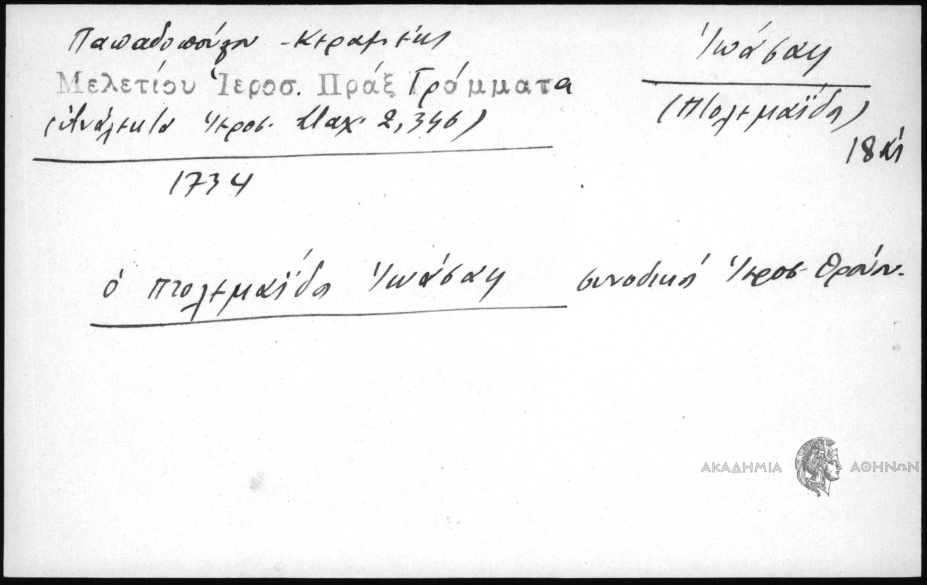 Παπαδοπούλου - Κεραμέως
Μελετίου Ἱεροσ. Πράξ Γράμματα
(Ἀνάλεκτα Ἱεροσ. Σταχ. 2, 346)
1734
Ἰωάσαφ
(Πτολεμαΐδος)
18
ὁ Πτολεμαΐδος Ἰωάσαφ συνοδικός Ἱεροσ. Θρόνου.
ΑΚΑΔΗΜΙΑ ΑΘΗΝΩΝ